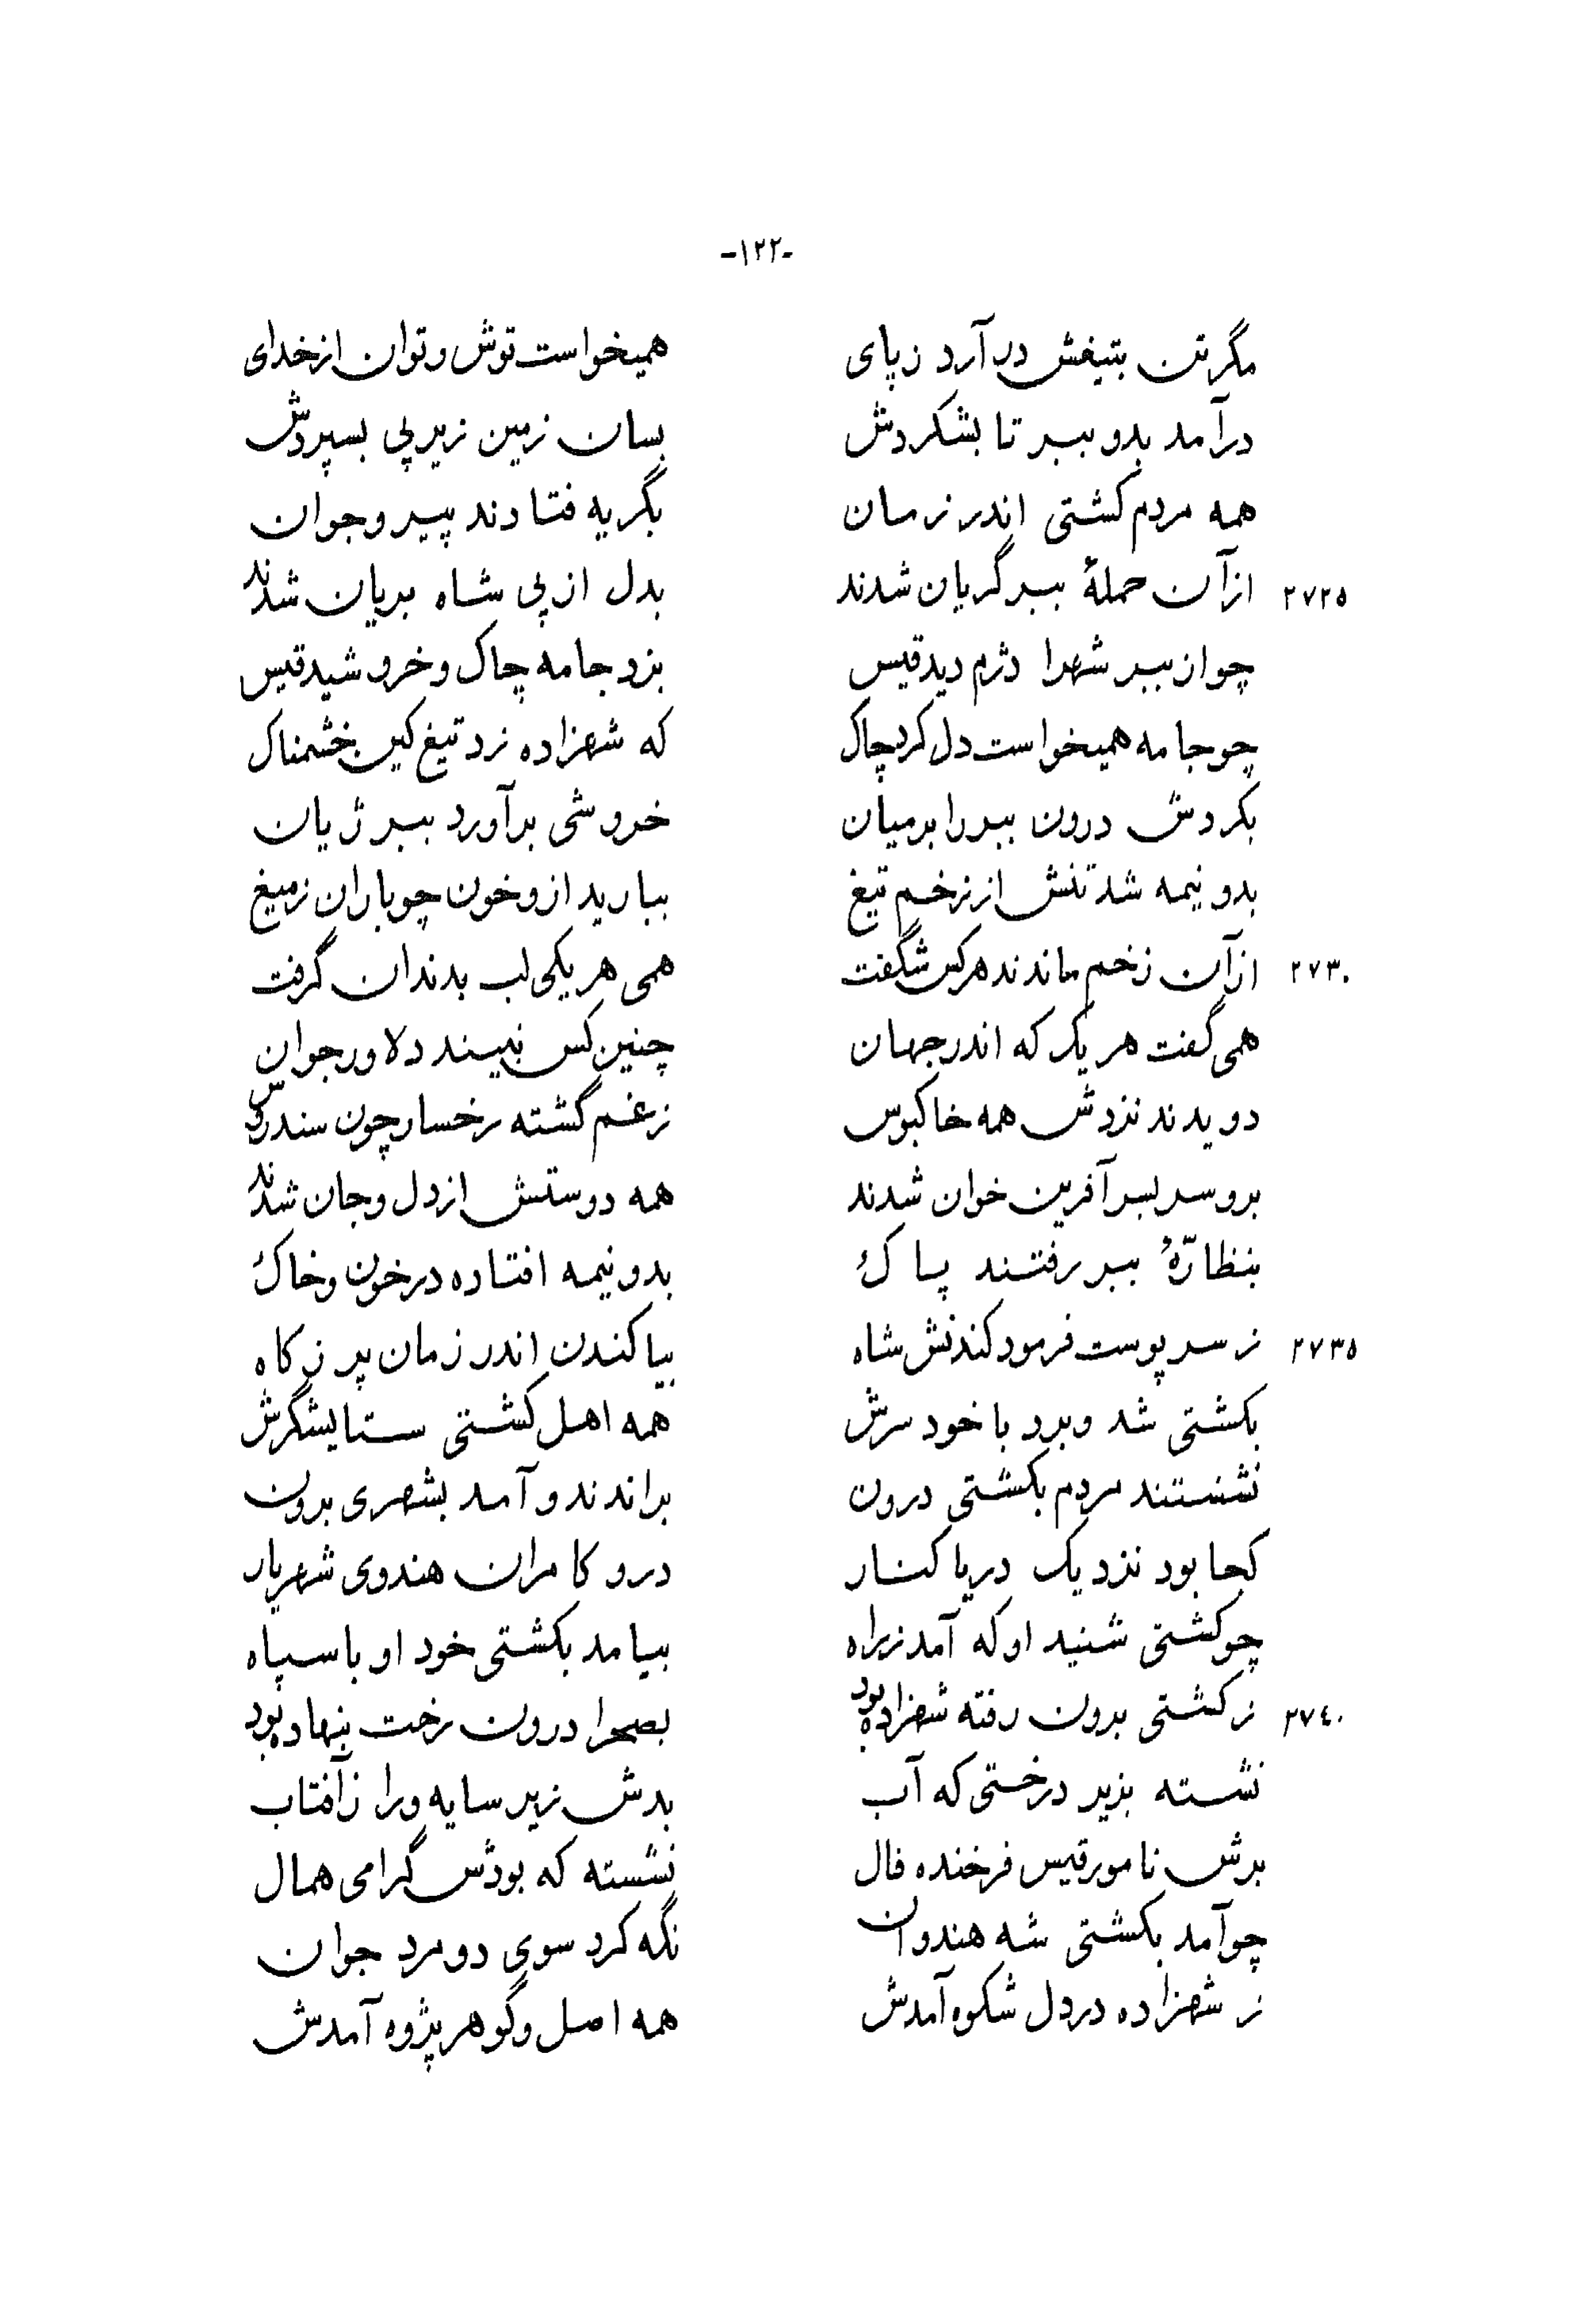 -۱۲۲-
مگر تن بتیغش در آرد ز پای همیخواست توش و توان از خدای
درآمد بدو ببر تا بشکردش بسان زمین زیر پی بسپردش
همه مردم کشتی اندر زمان بگریه فتادند پیر و جوان
۲۷۲۵ از آن حملهٔ ببر گریان شدند بدل از پی شاه بریان شدند
چو از ببر شه را دژم دید قیس بزد جامه چاک و خروشید قیس
چو جامه همیخواست دل کرد چاک که شهزاده زد تیغ کین خشمناک
بکردش درون ببر را بر میان خروشی برآورد ببر ژیان
بدو نیمه شد تنش از زخم تیغ ببارید ازو خون چو باران ز میغ
۲۷۳۰ از آن زخم ماندند هر کس شگفت همی هر یکی لب بدندان گرفت
همی گفت هر یک که اندر جهان چنین کس نبیند دلاور جوان
دویدند نزدش همه خاکبوس ز غم گشته رخسار چون سندروس
برو سر بسر آفرین خوان شدند همه دوستش از دل و جان شدند
بنظارّهٔ ببر رفتند پاک بدو نیمه افتاده در خون و خاک
۲۷۳۵ ز سر پوست فرمود کندنش شاه بیاکندن اندر زمان پر ز کاه
بکشتی شد و برد با خود سرش همه اهل کشتی ستایشگرش
نشستند مردم بکشتی درون براندند و آمد بشهری برون
کجا بود نزدیک دریا کنار درو کامران هندوی شهریار
چو کشتی شنید او که آمد ز راه بیامد بکشتی خود او با سپاه
۲۷۴۰ ز کشتی برون رفته شهزاده بود بصحرا درون رخت بنهاده بود
نشسته بزیر درختی که آب بدش زیر سایه ورا ز آفتاب
برش نامور قیس فرخنده فال نشسته که بودش گرامی همال
چو آمد بکشتی شه هندوان نگه کرد سوی دو مرد جوان
ز شهزاده در دل شکوه آمدش همه اصل و گوهر پژوه آمدش